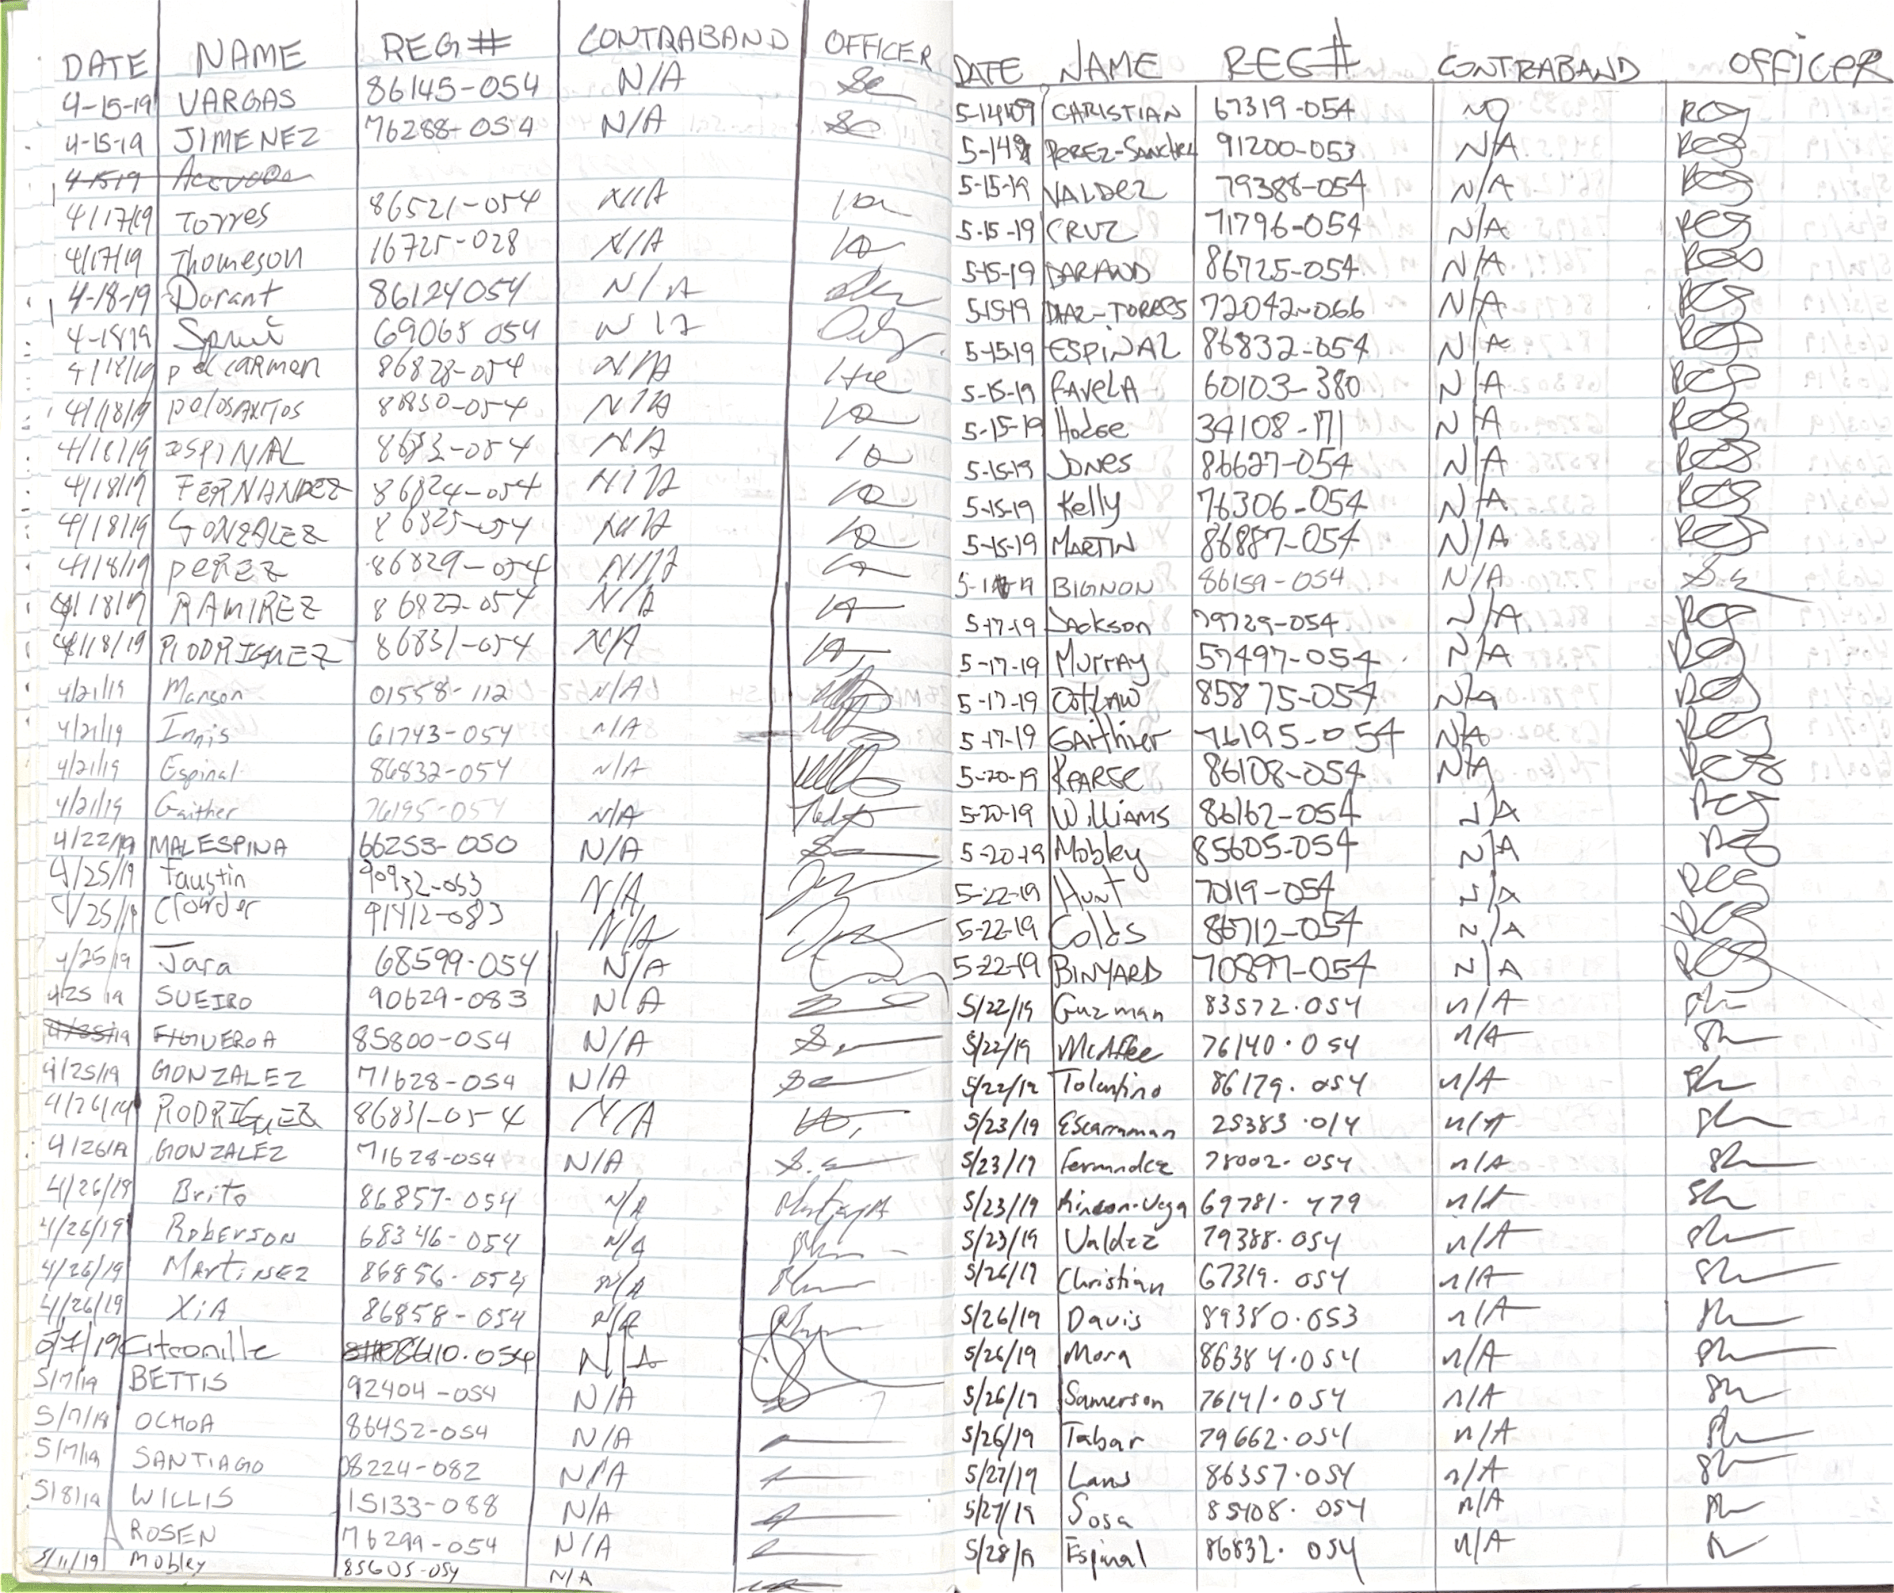 DATE NAME REG# CONTRABAND OFFICER
4-15-19 VARGAS 86145-054 N/A
4-15-19 JIMENEZ 76288-054 N/A
4-15-19
4/17/19 Torres 86521-054 N/A
4/17/19 Thomeson 16725-028 N/A
4-18-19 Durant 86124054 N/A
4-18-19 69065 054 N/A
4/18/19 del CARMEN 86828-054 N/A
4/18/19 86830-054 N/A
4/18/19 ESPINAL 8683-054 N/A
4/18/19 FERNANDEZ 86824-054 N/A
4/18/19 GONZALEZ 86825-054 N/A
4/18/19 PEREZ 86829-054 N/A
4/18/19 RAMIREZ 86827-054 N/A
4/18/19 RODRIGUEZ 86831-054 N/A
4/21/19 Manson 01558-112 N/A
4/21/19 Innis 61743-054 N/A
4/21/19 Espinal 86832-054 N/A
4/21/19 Gaither 76195-054 N/A
4/22/19 MALESPINA 66253-050 N/A
4/25/19 Faustin 90932-053 N/A
4/25/19 Clowder 91412-083 N/A
4/25/19 Jara 68599-054 N/A
4/25 19 SUEIRO 90629-083 N/A
4/25/19 FIGUEROA 85800-054 N/A
4/25/19 GONZALEZ 71628-054 N/A
4/26/19 RODRIGUEZ 86831-054 N/A
4/26/19 GONZALEZ 71628-054 N/A
4/26/19 Brito 86857-054 N/A
4/26/19 Roberson 68346-054 N/A
4/26/19 MARTINEZ 86856-054 N/A
4/26/19 XiA 86858-054 N/A
5/7/19 Citronille 86110.054 N/A
5/7/19 BETTIS 92404-054 N/A
5/7/19 OCHOA 86452-054 N/A
5/7/19 SANTIAGO 08224-082 N/A
5/8/19 WILLIS 15133-088 N/A
ROSEN 76299-054 N/A
5/11/19 Mobley 85605-054 N/A
DATE NAME REG# CONTRABAND OFFICER
CHRISTIAN 67319-054 REG
PEREZ-Sanchez 91200-053 N/A REG
5-15-19 VALDEZ 79388-054 N/A REG
5-15-19 CRUZ 71796-054 N/A REG
5-15-19 86725-054 N/A REG
5-15-19 DIAZ-TORRES 72042-066 N/A REG
5-15-19 ESPINAL 86832-054 N/A REG
5-15-19 FAVELA 60103-380 N/A REG
5-15-19 Hodge 34108-171 N/A REG
5-15-19 JONES 86627-054 N/A REG
5-15-19 Kelly 76306-054 N/A REG
5-15-19 MARTIN 86887-054 N/A REG
BIGNON 86159-054 N/A
5-17-19 Jackson 79729-054 N/A REG
5-17-19 MURRAY 57497-054 N/A REG
5-17-19 OUTLAW 85875-054 N/A REG
5-17-19 GAithier 76195-054 N/A REG
5-20-19 KEARSE 86108-054 N/A REG
5-20-19 Williams 86162-054 N/A REG
5-20-19 Mobley 85605-054 N/A REG
5-22-19 HUNT 70119-054 N/A REG
5-22-19 86712-054 N/A REG
5-22-19 BINYARD 70897-054 N/A REG
5/22/19 Guzman 83572.054 n/A
5/22/19 McAffee 76140.054 n/A
5/22/19 Tolentino 86179.054 n/A
5/23/19 Escarraman 25383.014 n/A
5/23/19 Fernandez 78002.054 n/A
5/23/19 Rincon-Vega 69781.479 n/A
5/23/19 Valdez 79388.054 n/A
5/26/19 Christian 67319.054 n/A
5/26/19 Davis 89380.053 n/A
5/26/19 Mora 86384.054 n/A
5/26/19 Samerson 76141.054 n/A
5/26/19 Tabar 79662.054 n/A
5/27/19 Laws 86357.054 n/A
5/27/19 Sosa 85408.054 n/A
5/28/19 Espinal 86832.054 n/A